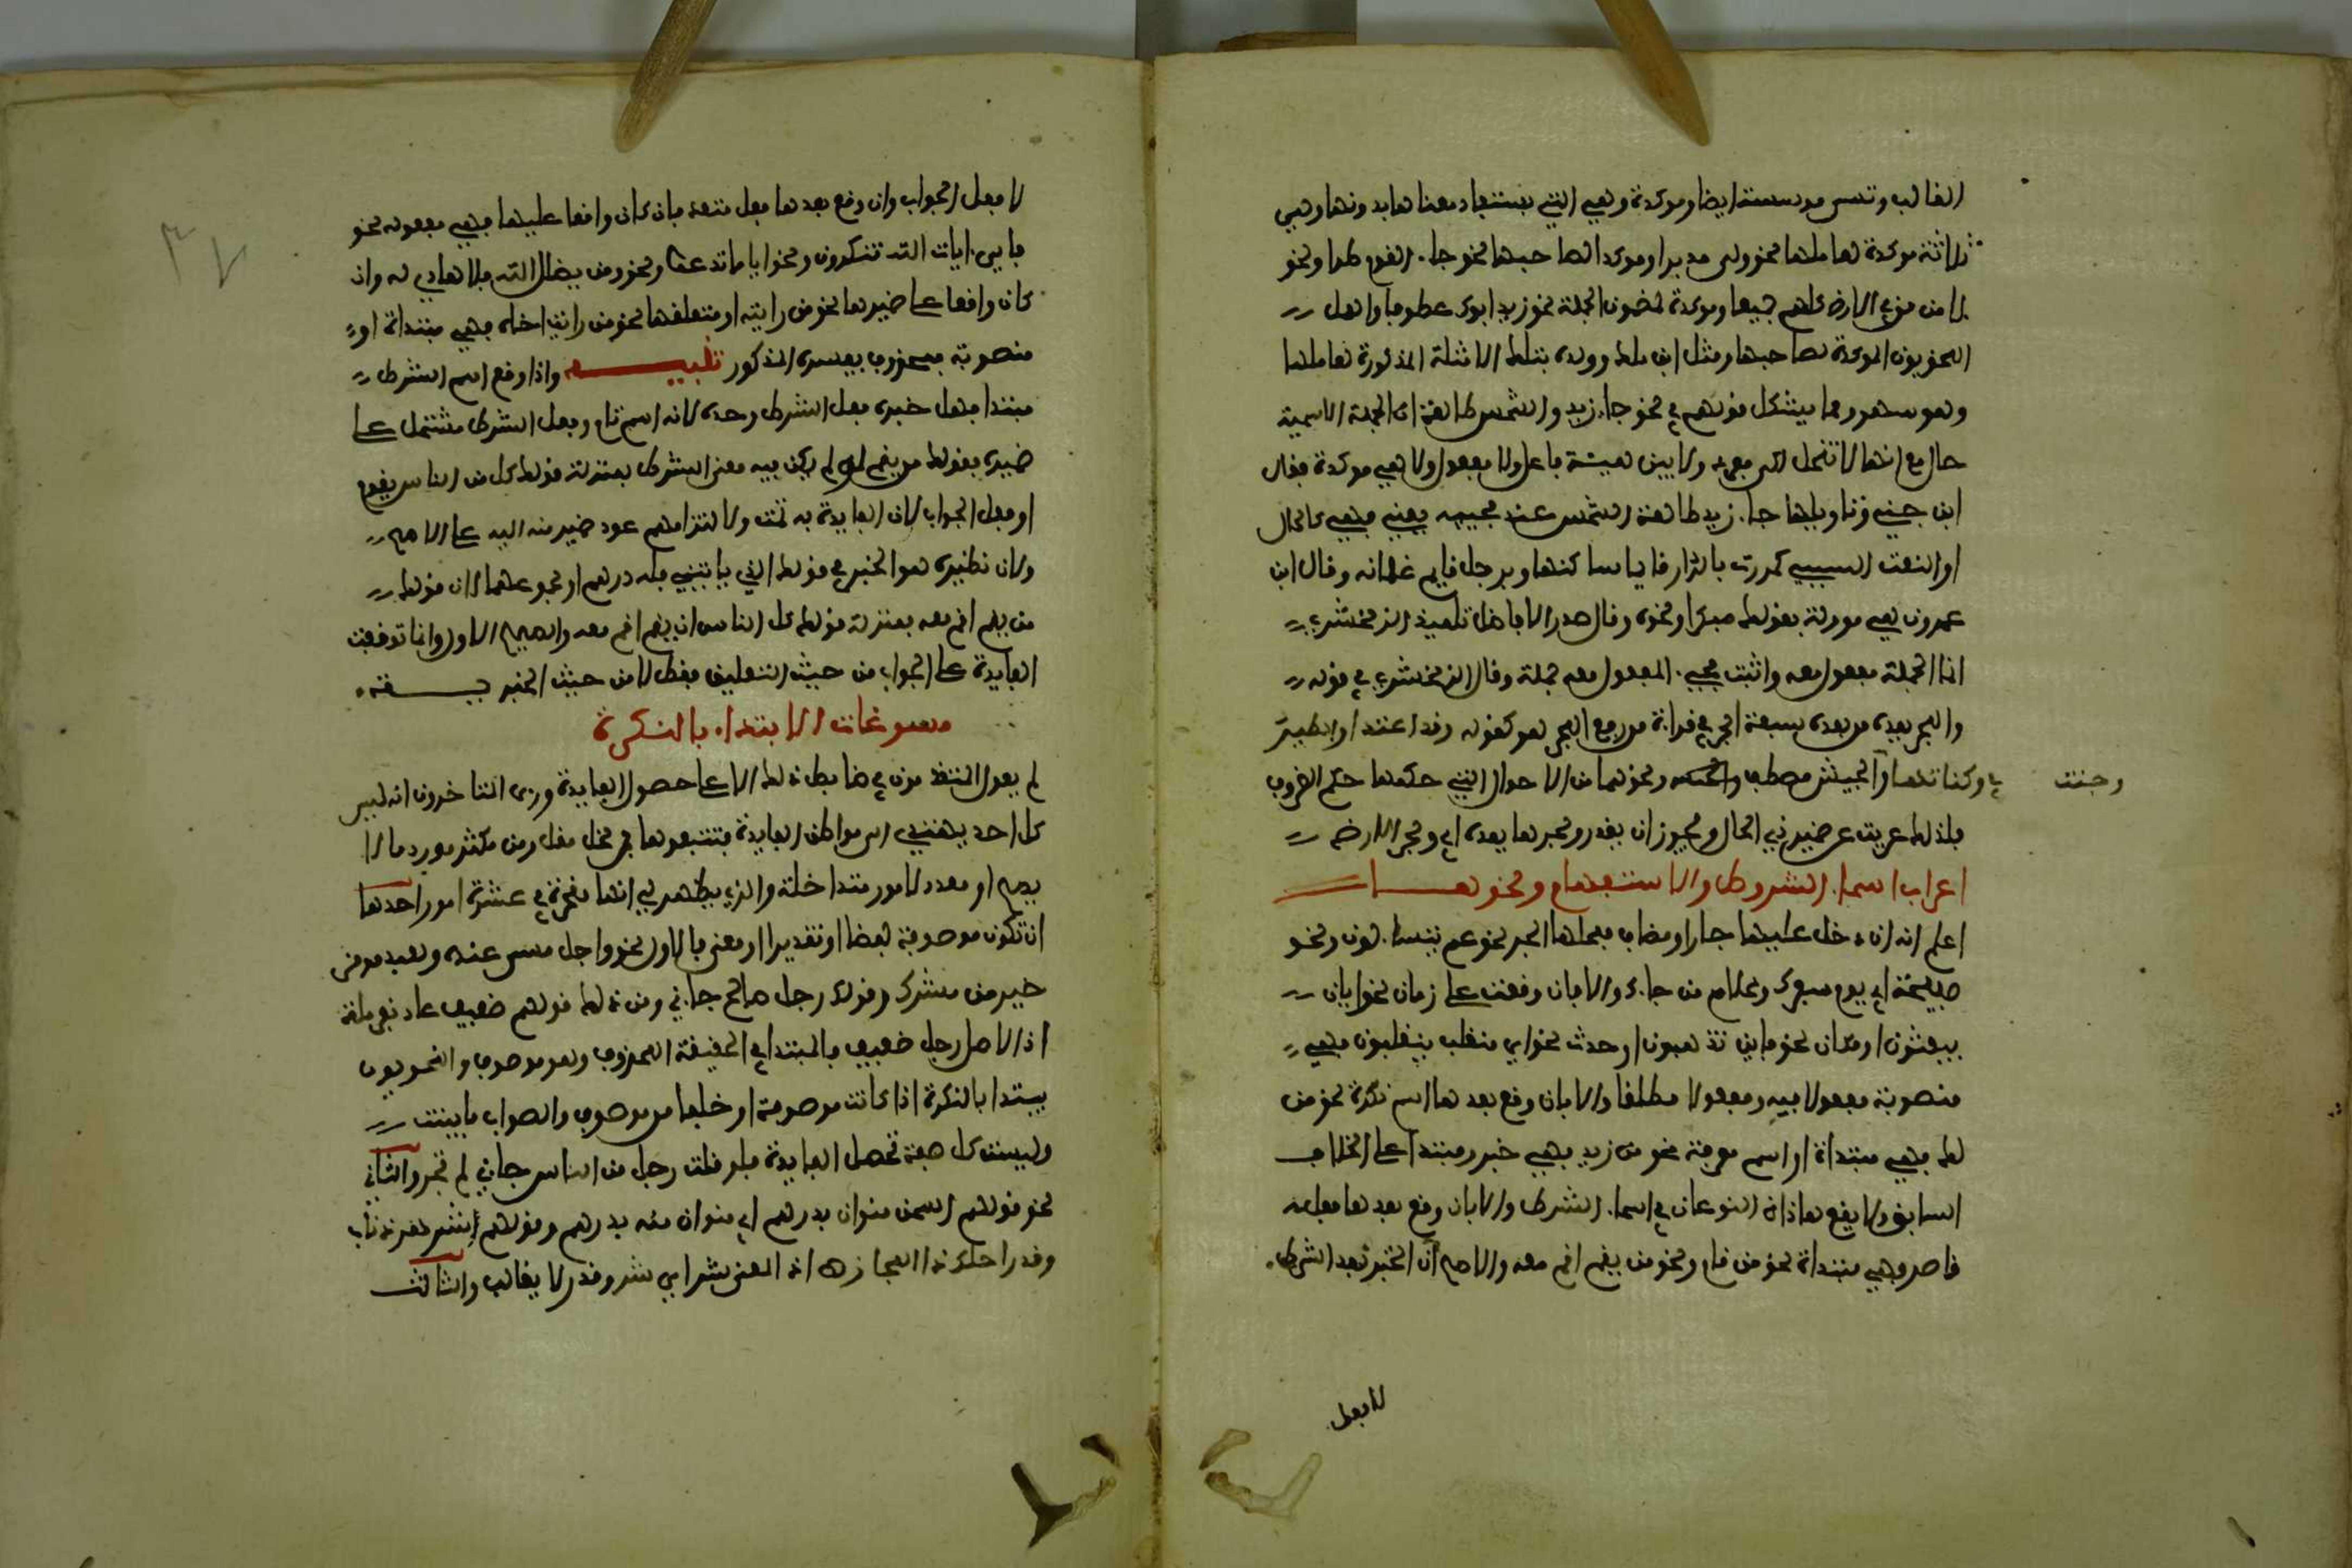 الغالب وتسمى موسسة ايضا وموكدة وهي التي يستفاد معناها بدونها وهي
ثلاثة موكدة لعاملها نحو ولى مدبرا وموكدة لصاحبها نحو جاء القوم طرا ونحو
لامن من في الارض كلهم جميعا وموكدة لمضمون الجملة نحو زيد ابوك عطوفا واهمل
النحويون الموكدة لصاحبها ومثل ابن ملك وولده بتلك الامثلة المذكورة لعاملها
وهو سهو ومما يشكل قولهم في نحو جاء زيد والشمس طالعة ان الجملة الاسمية
حال مع انها لا تنحل الى مفرد ولا يبين هيئة فاعل ولا مفعول ولا هي موكدة فقال
ابن جني وتاويلها جاء زيد طالعة الشمس عند مجيئه يعني فهي كالحال
او النعت السببي كمررت بالدار قايما ساكنها وبرجل قايم غلمانه وقال ابن
عمرون هي موولة بقولك مبكرا ونحوه وقال صدر الافاضل تلميذ الزمخشري
انما الجملة مفعول معه واثبت مجيء المفعول معه جملة وقال الزمخشري في قوله
والبحر يمده من بعده سبعة ابحر في قراءة من رفع البحر هو كقوله وقد اغتدا والطير
في وكناتها وجئت والجيش مصطف ونحوهما من الاحوال التي حكمها حكم الظروف
فلذلك عريت عن ضمير ذي الحال ويجوز ان يقدر وبحرها يمده اي وبحر الارض
اعراب اسماء الشروط والاستفهام ونحوهـــا
اعلم انه ان دخل عليها جار او مضاف فمحلها الجر نحو عم يتسالون ونحو
صبيحة اي يوم سفرك وغلام من جاك والا فان وقعت على زمان نحو ايان
يبعثون او مكان نحو فاين تذهبون او حدث نحو اي منقلب ينقلبون فهي
منصوبة مفعولا فيه ومفعولا مطلقا والا فان وقع بعدها اسم نكرة نحو من
لك فهي مبتداة او اسم معرفة نحو من زيد فهي خبر ومبتدا على الخلاف
السابق ولا يقع هاذان النوعان في اسماء الشرط والا فان وقع بعدها فعل
قاصر فهي مبتداة نحو من قام ونحو من يقم اقم معه والاصح ان الخبر فعل الشرط
لا فعل
لا فعل الجواب وان وقع بعدها فعل متعد فان كان واقعا عليها فهي مفعوله نحو
فاي ايات الله تنكرون ونحو ايا ما تدعوا ونحو من يضلل الله فلا هادي له وان
كان واقعا على ضميرها نحو من رايته او متعلقها نحو من رايت اخاه فهي مبتداة او
منصوبة بمحذوف يفسره المذكور تنبيـــه واذا وقع اسم الشرط
مبتدا فهل خبره فعل الشرط وحده لانه اسم تام وفعل الشرط مشتمل على
ضميره فقولك من يقم لو لم يكن فيه معنى الشرط بمنزلة قولك كل من الناس يقوم
او فعل الجواب لان الفايدة به تمت ولالتزامهم عود ضمير منه اليه على الاصح
ولان نظيره هو الخبر في قولك الذي ياتيني فله درهم او مجموعهما لان قولك
من يقم اقم معه بمنزلة قولك كل الناس ان يقم اقم معه والصحيح الاول وانما توقفت
الفايدة على الجواب من حيث التعليق فقط لا من حيث الخبريـــة
مسوغات الابتداء بالنكرة
لم يعول المتقدمون في ضابط ذلك الا على حصول الفايدة وراى المتاخرون انه ليس
كل احد يهتدي الى مواطن الفايدة فتتبعوها فمن مخل مقل ومن مكثر مورد ما لا
يصح او معدد لامور متداخلة والذي يظهر لي انها منحصرة في عشرة امور احدها
ان تكون موصوفة لفظا او تقديرا او معنى فالاول نحو واجل مسمى عنده ولعبد مومن
خير من مشرك وقولك رجل صالح جاني ومن ذلك قولهم ضعيف عاذ بقرملة
اذ الاصل رجل ضعيف فالمبتدا في الحقيقة المحذوف وهو موصوف والنحويون
يبتدا بالنكرة اذا كانت موصوفة او خلفا من موصوف والصواب ما بينت
وليست كل صفة تحصل الفايدة فلو قلت رجل من الناس جاني لم تجز والثاني
نحو قولهم السمن منوان بدرهم اي منوان منه بدرهم وقولهم شر اهر ذا ناب
وقدر احلك ذا المجاز اذ المعنى شر اي شر وقدر لا يغالب والثالث
٣٧